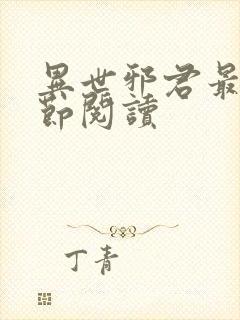 異世邪君最
節閱讀
丁青